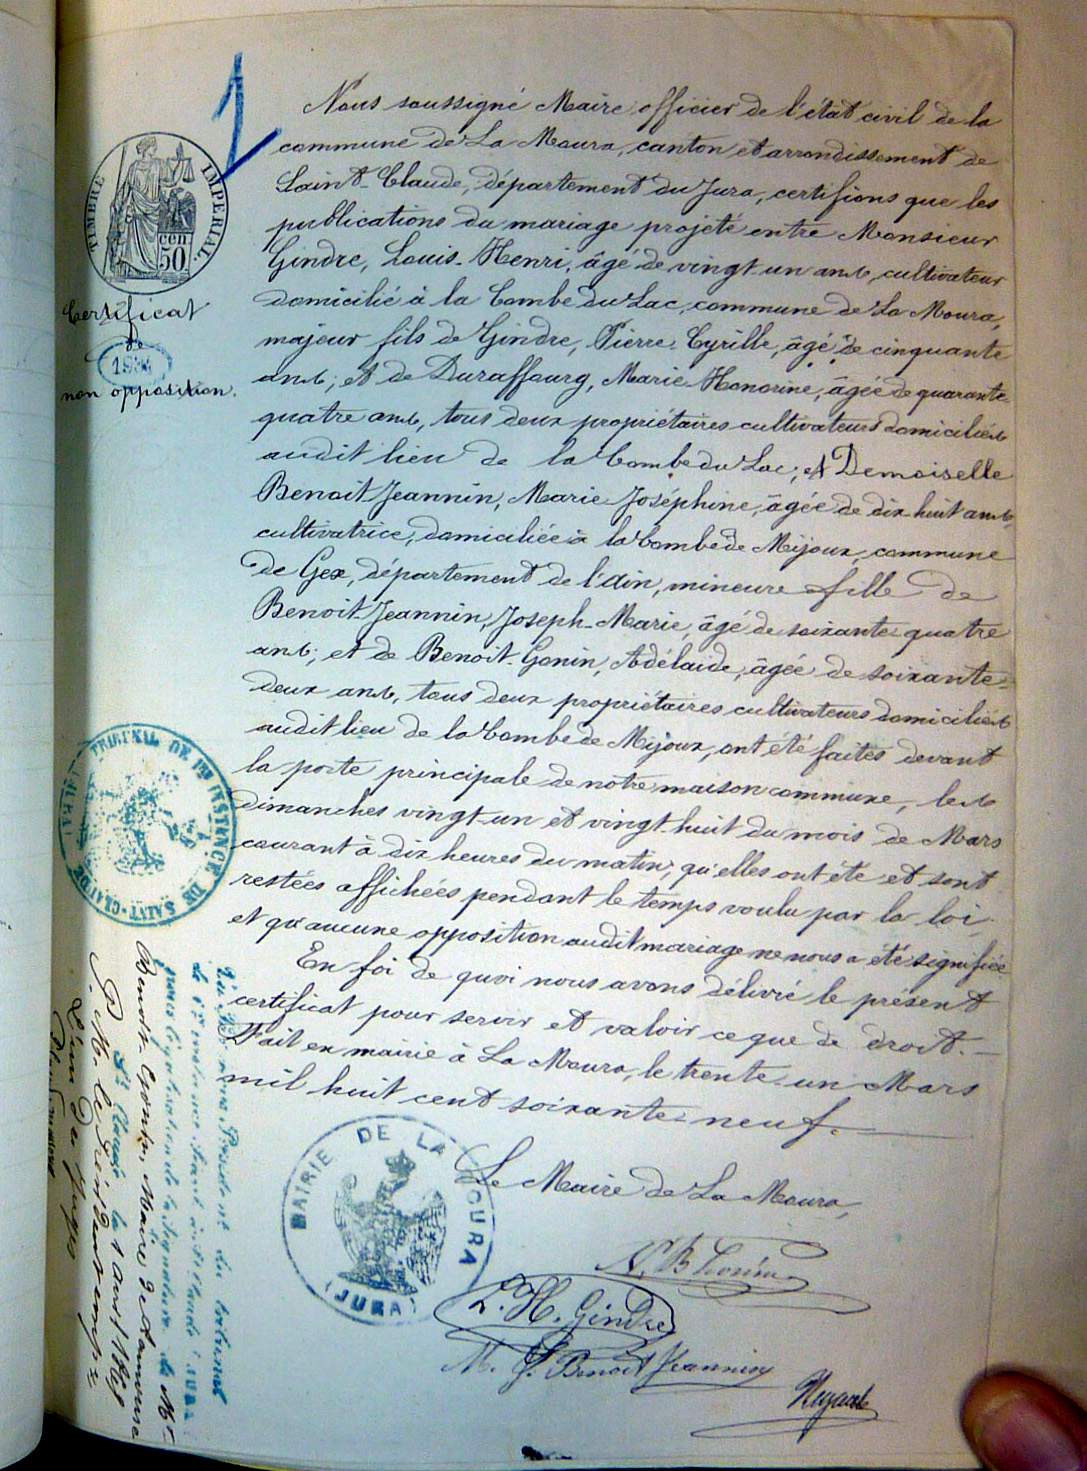 1
TIMBRE IMPERIAL.
cen
50
Certificat
de
non opposition.
Nous soussigné Maire officier de l'état civil de la
commune de La Moura, canton et arrondissement de
Saint-Claude, département du Jura, certifions que les
publications du mariage projeté entre Monsieur
Gindre, Louis-Henri, âgé de vingt un ans, cultivateur
domicilié à la Combe du Lac, commune de La Moura,
majeur fils de Gindre, Pierre-Cyrille, âgé de cinquante
ans; et de Duraffourg, Marie Honorine, âgée de quarante
quatre ans, tous deux propriétaires cultivateurs domiciliés
audit lieu de la Combe du Lac; et Demoiselle
Benoit Jeannin, Marie Joséphine, âgée de dix huit ans
cultivatrice, domiciliée à la Combe de Mijoux, commune
de Gex, département de l'Ain, mineure fille de
Benoit-Jeannin, Joseph-Marie, âgé de soixante quatre
ans; et de Benoit-Gonin, Adélaide, âgée de soixante-
deux ans, tous deux propriétaires cultivateurs domiciliés
audit lieu de la Combe de Mijoux, ont été faites devant
la porte principale de notre maison commune, les
dimanches vingt-un et vingt-huit du mois de Mars
courant à dix heures du matin; qu'elles ont été et sont
restées affichées pendant le temps voulu par la loi
et qu'aucune opposition audit mariage ne nous a été signifiée
En foi de quoi nous avons délivré le présent
certificat pour servir et valoir ce que de droit.
Fait en mairie à La Moura, le trente-un Mars
mil huit cent soixante-neuf.
Le Maire de La Moura,
MAIRIE DE LA MOURA
(JURA)
L. H. Gindre
M. J. Benoit Jeannin
TRIBUNAL DE 1re INSTANCE DE SAINT-CLAUDE
(JURA)
Président du tribunal
de 1re instance séant à St Claude (Jura)
pour légalisation de la signature de Mr
Benoit-Gonin, Maire de Lamoura
St Claude le 1 avril 1869
P. Mr le Président empêché
L'un des juges